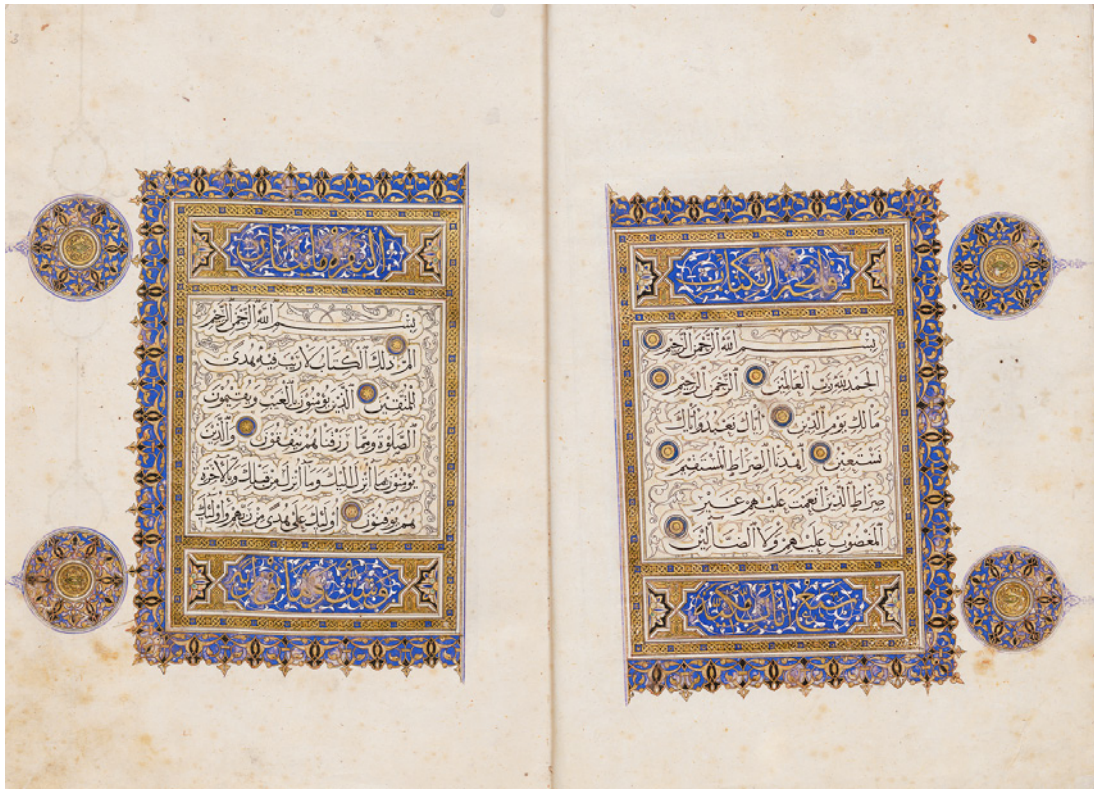 فاتحة الكتاب
بسم الله الرحمن الرحيم
الحمد لله رب العالمين الرحمن الرحيم
مالك يوم الدين اياك نعبد واياك
نستعين اهدنا الصراط المستقيم
صراط الذين انعمت عليهم غير
المغضوب عليهم ولا الضالين
سبع ايات مكية
البقرة مائتان
بسم الله الرحمن الرحيم
الم ذلك الكتاب لا ريب فيه هدى
للمتقين الذين يؤمنون بالغيب ويقيمون
الصلوة ومما رزقناهم ينفقون والذين
يؤمنون بما انزل اليك وما انزل من قبلك وبالاخرة
هم يوقنون اولئك على هدى من ربهم واولئك